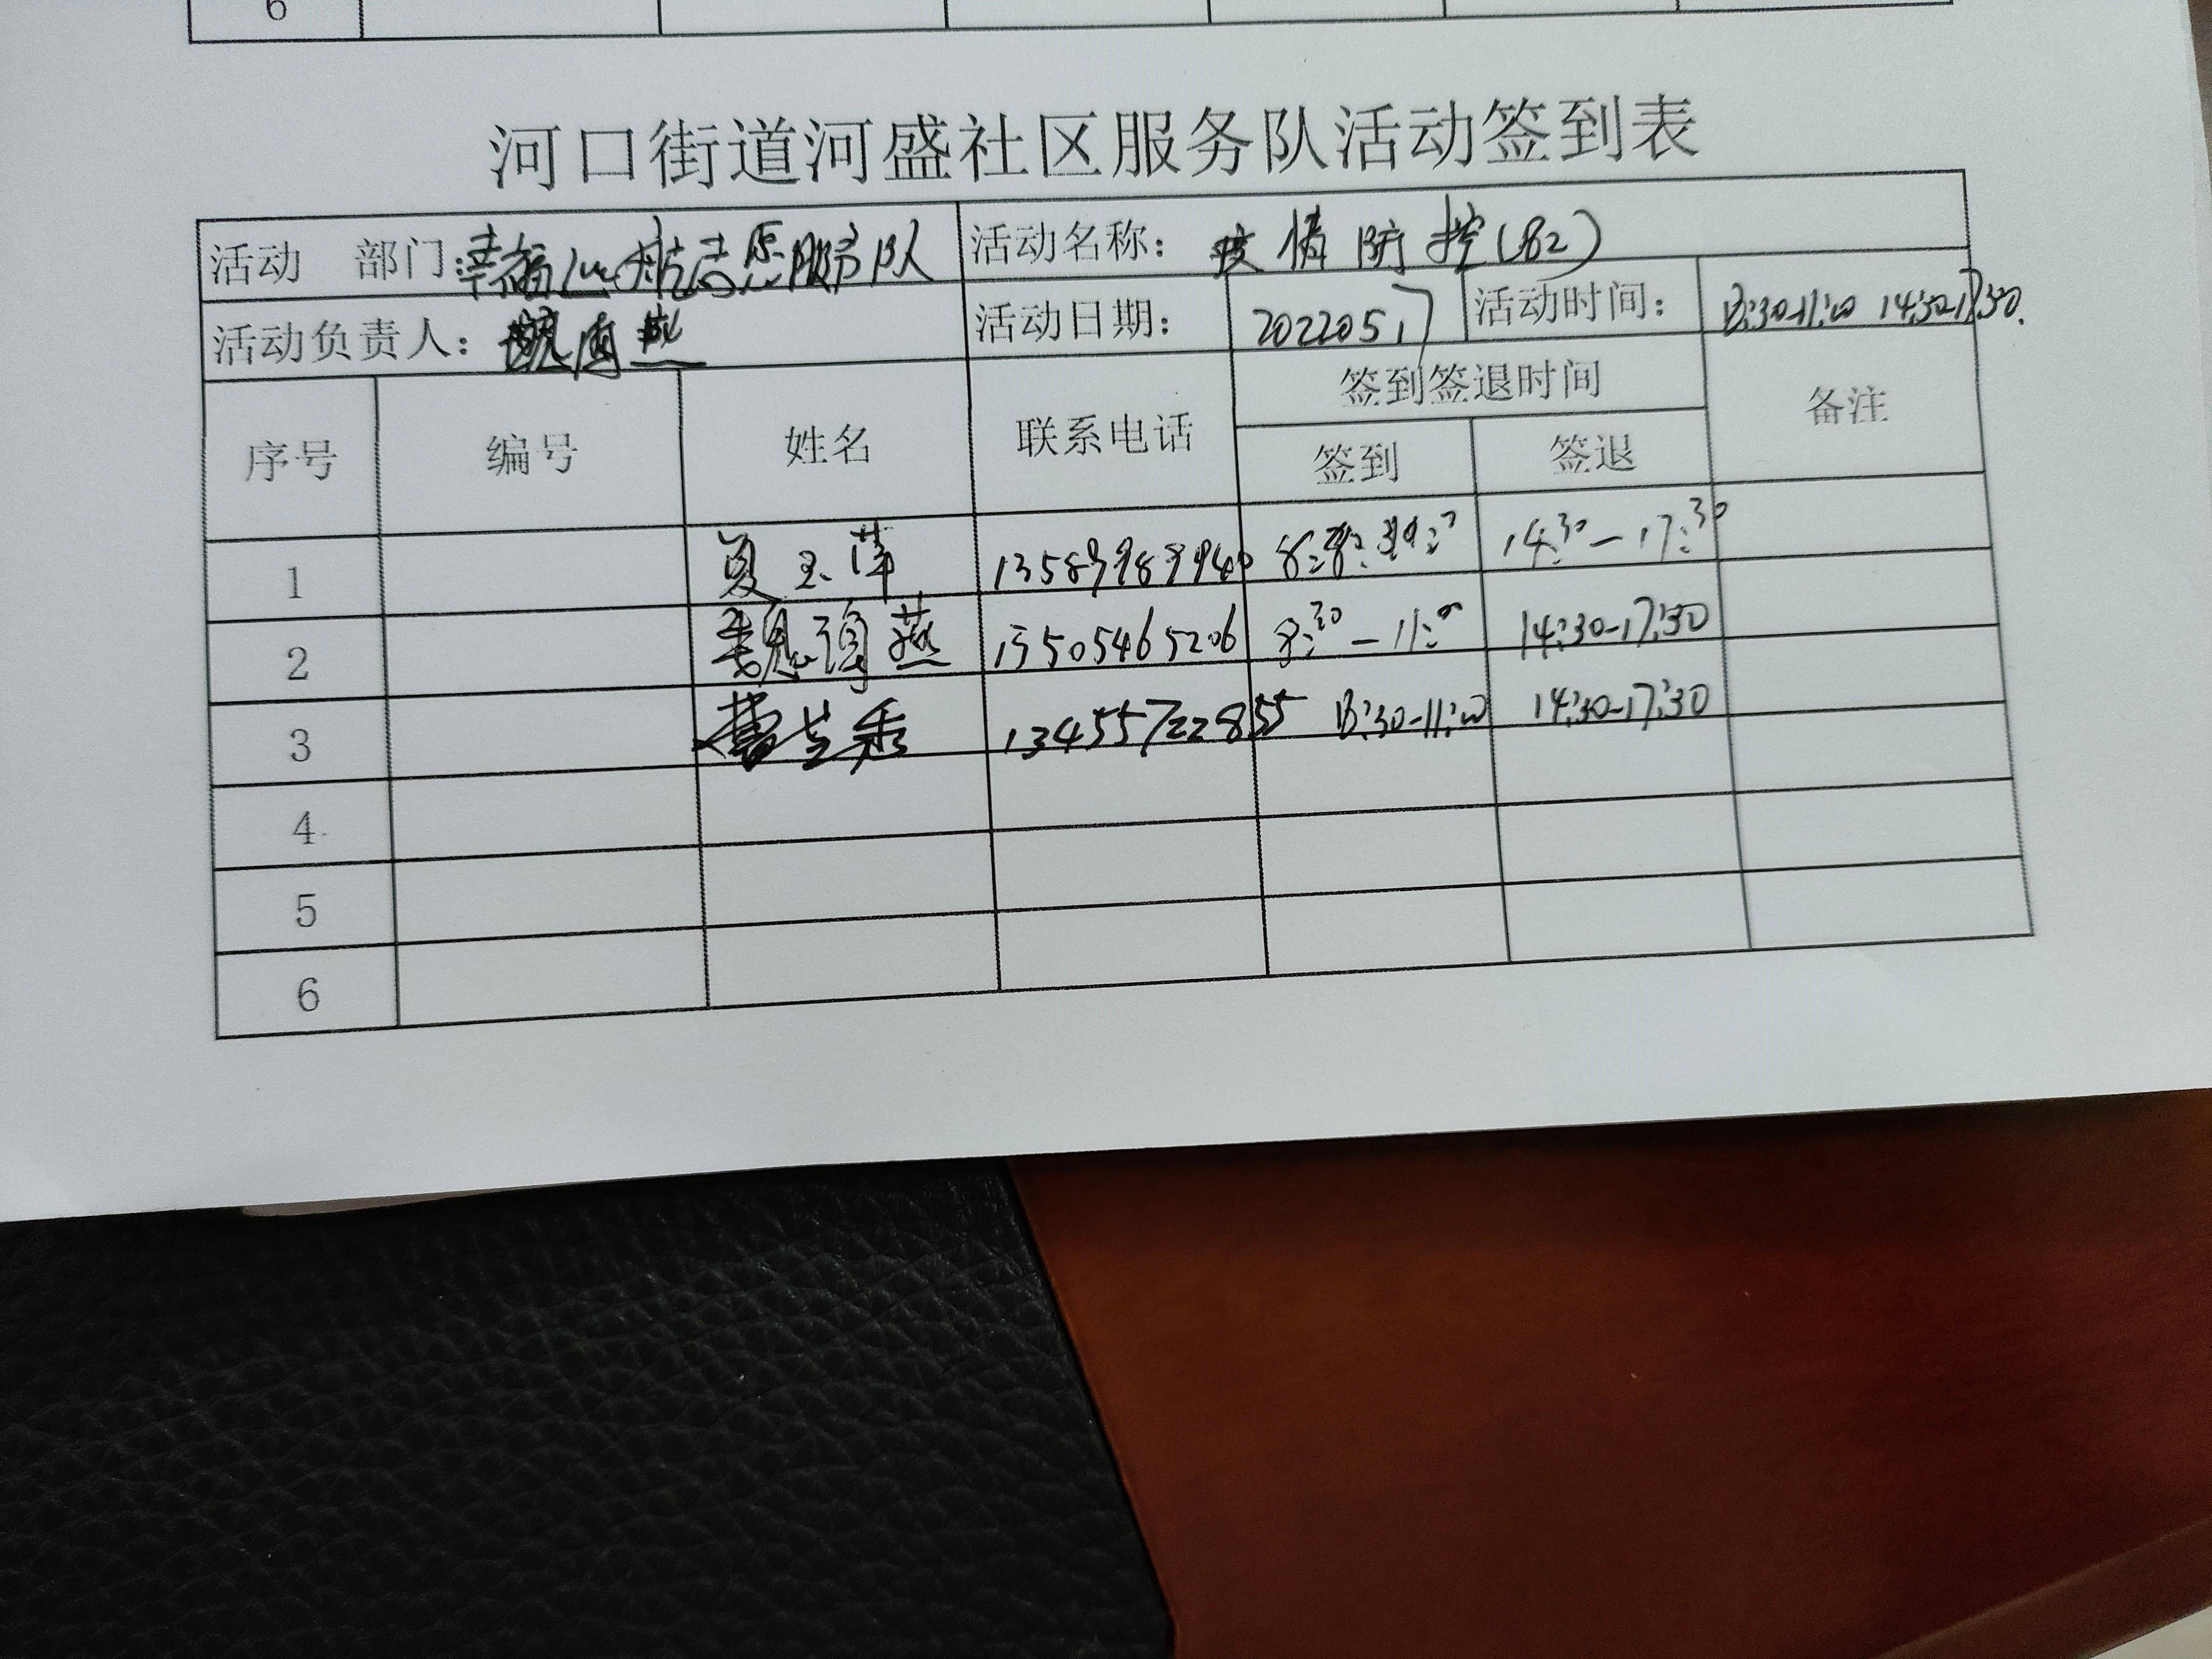 6
河口街道河盛社区服务队活动签到表
活动 部门：幸福 志愿服务队 活动名称： 疫情防控(82)
活动负责人：魏海燕 活动日期： 20220517 活动时间： 8:30-11:00 14:30-17:30.
签到签退时间
序号 编号 姓名 联系电话 签到 签退 备注
1 夏玉萍 14:30-17:30
2 魏海燕 13505465206 8:30-11:00 14:30-17:30
3 曹 秀 13455722855 8:30-11:00 14:30-17:30
4
5
6